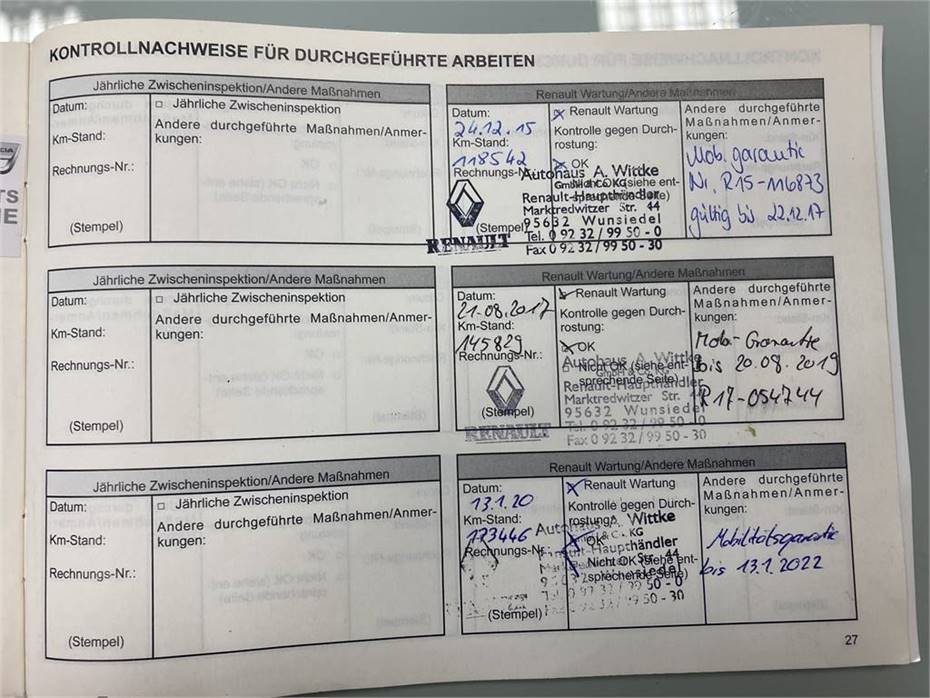 KONTROLLNACHWEISE FÜR DURCHGEFÜHRTE ARBEITEN
Jährliche Zwischeninspektion/Andere Maßnahmen
Datum:
□ Jährliche Zwischeninspektion
Km-Stand:
Andere durchgeführte Maßnahmen/Anmer-
kungen:
Rechnungs-Nr.:
(Stempel)
Renault Wartung/Andere Maßnahmen
Datum:
24.12.15
Km-Stand:
118542
Rechnungs-Nr.:
(Stempel)
Renault Wartung
Kontrolle gegen Durch-
rostung:
OK
Nicht OK (siehe ent-
sprechende Seite)
Autohaus A. Wittke
GmbH & Co. KG
Renault-Haupthändler
Marktredwitzer Str. 44
95632 Wunsiedel
Tel. 0 92 32 / 99 50 - 0
Fax 0 92 32 / 99 50 - 30
RENAULT
Andere durchgeführte
Maßnahmen/Anmer-
kungen:
Mob. garantie
Nr. R15-116873
gültig bis 22.12.17
Jährliche Zwischeninspektion/Andere Maßnahmen
Datum:
□ Jährliche Zwischeninspektion
Km-Stand:
Andere durchgeführte Maßnahmen/Anmer-
kungen:
Rechnungs-Nr.:
(Stempel)
Renault Wartung/Andere Maßnahmen
Datum:
21.08.2017
Km-Stand:
145829
Rechnungs-Nr.:
(Stempel)
Renault Wartung
Kontrolle gegen Durch-
rostung:
OK
Nicht OK (siehe ent-
sprechende Seite)
Autohaus A. Wittke
GmbH & Co. KG
Renault-Haupthändler
Marktredwitzer Str. 44
95632 Wunsiedel
Tel. 0 92 32 / 99 50 - 0
Fax 0 92 32 / 99 50 - 30
RENAULT
Andere durchgeführte
Maßnahmen/Anmer-
kungen:
Mobi-Garantie
bis 20.08.2019
R17-054744
Jährliche Zwischeninspektion/Andere Maßnahmen
Datum:
□ Jährliche Zwischeninspektion
Km-Stand:
Andere durchgeführte Maßnahmen/Anmer-
kungen:
Rechnungs-Nr.:
(Stempel)
Renault Wartung/Andere Maßnahmen
Datum:
13.1.20
Km-Stand:
173446
Rechnungs-Nr.:
(Stempel)
Renault Wartung
Kontrolle gegen Durch-
rostung:
OK
Nicht OK (siehe ent-
sprechende Seite)
Autohaus A. Wittke
Co. KG
Renault-Haupthändler
Str. 44
Andere durchgeführte
Maßnahmen/Anmer-
kungen:
Mobilitätsgarantie
bis 13.1.2022
27